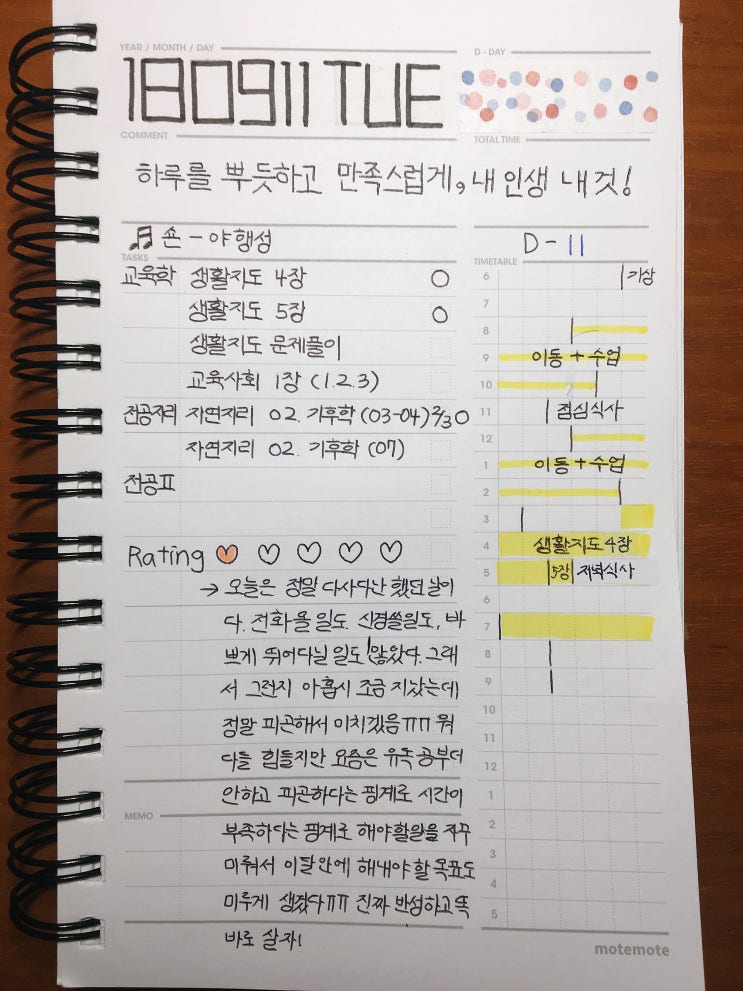 YEAR / MONTH / DAY
D - DAY
180911 TUE
COMMENT
TOTAL TIME
하루를 뿌듯하고 만족스럽게, 내 인생 내 것!
숀 - 야행성
D - 11
TASKS
교육학 생활지도 4장 O
생활지도 5장 O
생활지도 문제풀이
교육사회 1장 (1.2.3)
전공지리 자연지리 02. 기후학 (03-04) 2/3 O
자연지리 02. 기후학 (07)
전공표
Rating
→ 오늘은 정말 다사다난 했던 날이
다. 전화 올 일도 신경쓸일도, 바
쁘게 뛰어다닐 일도 많았다. 그래
서 그런지 아홉시 조금 지났는데
정말 피곤해서 미치겠음ㅠㅠ 뭐
다들 힘들지만 요즘은 유독 공부더
안하고 피곤하다는 핑계로 시간이
MEMO
부족하다는 핑계로 해야할일을 자꾸
미뤄서 이달안에 해내야 할 목표도
미루게 생겼다ㅠㅠ 진짜 반성하고 똑
바로 살자!
TIMETABLE
6 기상
7
8
9 이동 + 수업
10
11 점심식사
12
1 이동 + 수업
2
3
4 생활지도 4장
5 5장 저녁식사
6
7
8
9
10
11
12
1
2
3
4
5
motemote